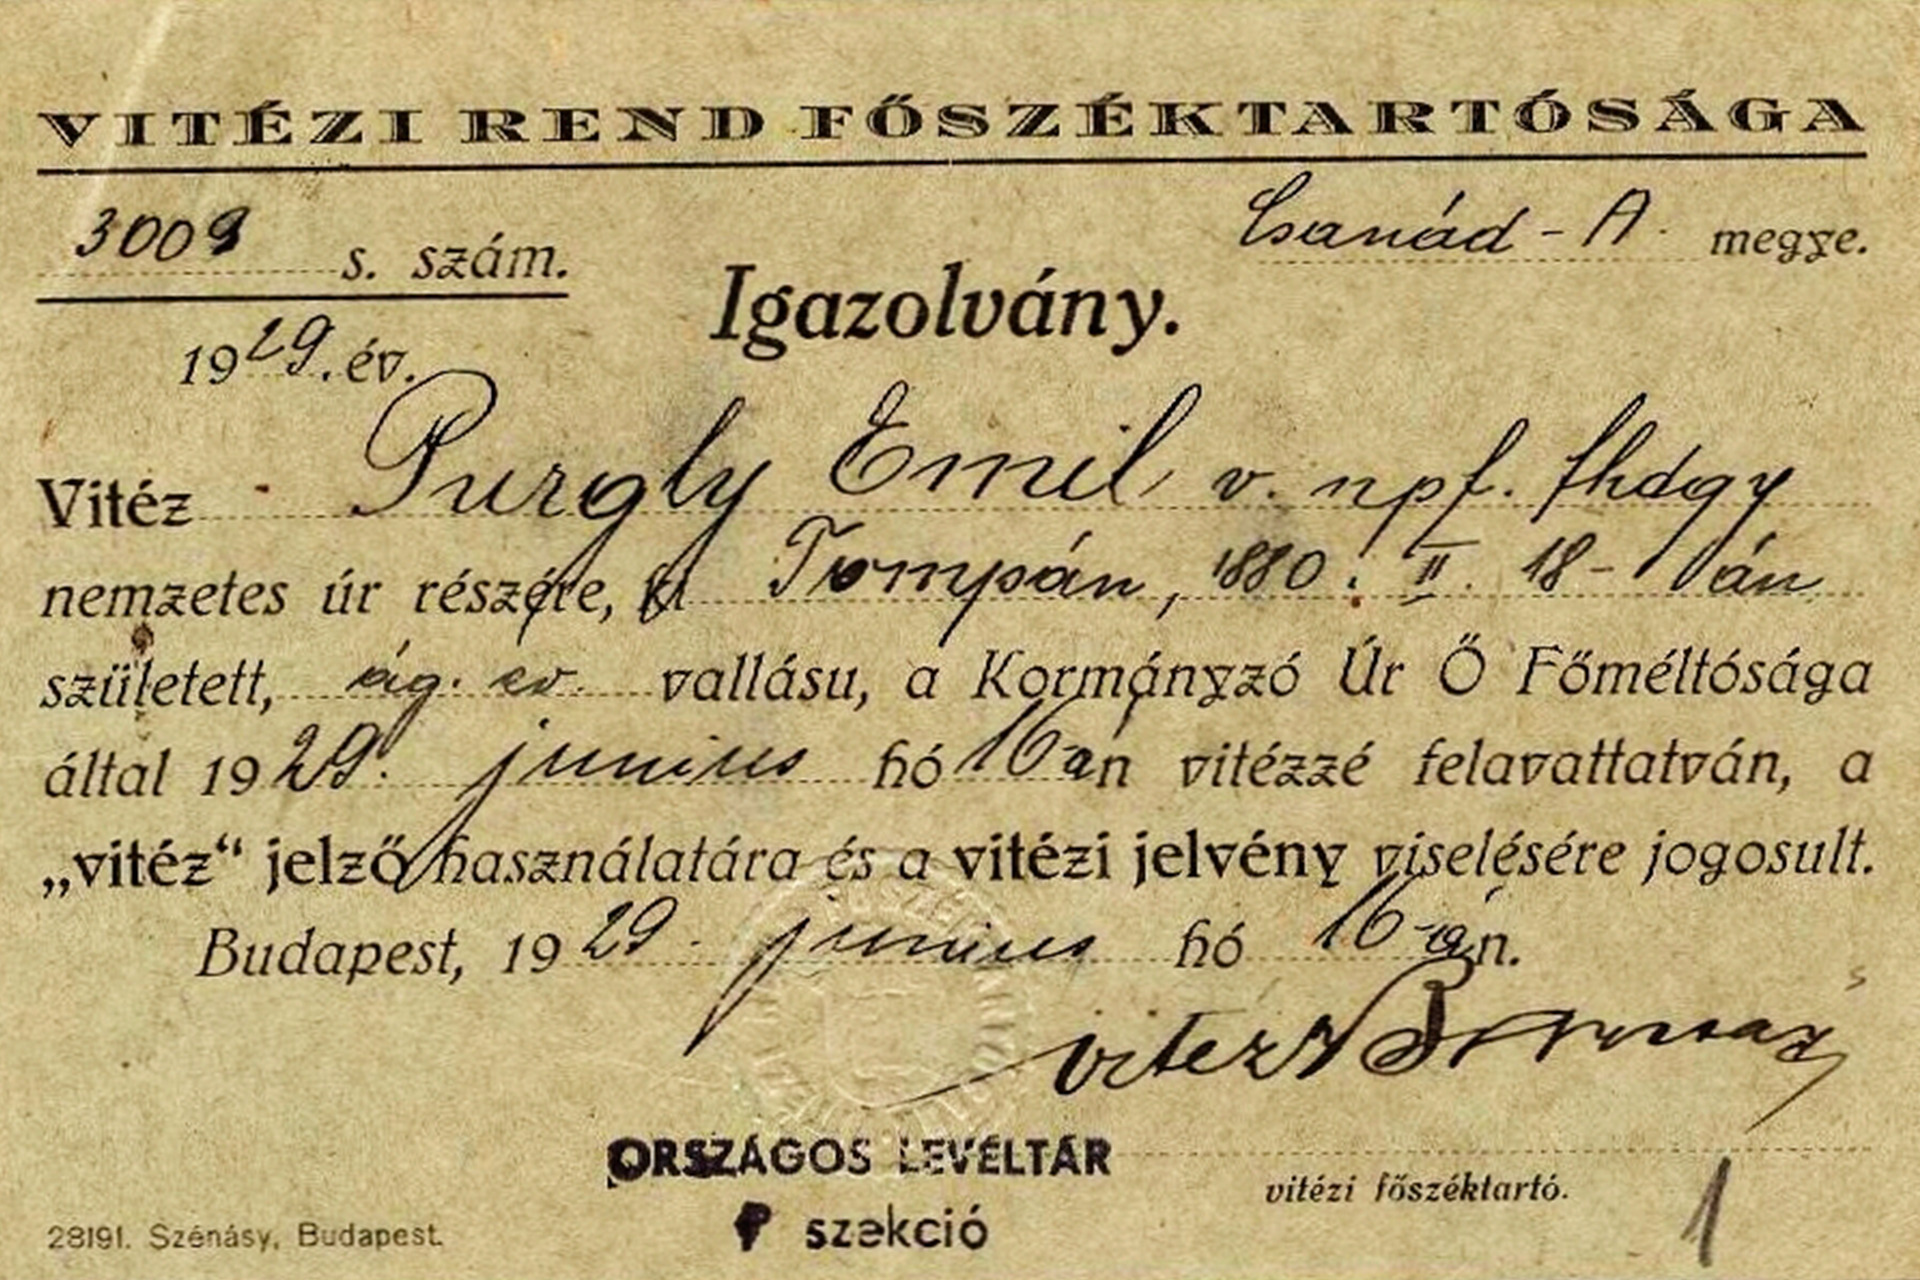 VITÉZI REND FŐSZÉKTARTÓSÁGA
3009 s. szám.
Csanád - A. megye.
Igazolvány.
1929. év.
Vitéz Purgly Emil v. npf. fhdgy
nemzetes úr részére, ki Tompán, 1880. II. 18-án
született, ág. ev. vallásu, a Kormányzó Úr Ő Főméltósága
által 1929. junius hó 16-án vitézzé felavattatván, a
„vitéz“ jelző használatára és a vitézi jelvény viselésére jogosult.
Budapest, 1929. junius hó 16-án.
vitéz
ORSZÁGOS LEVÉLTÁR
vitézi főszéktartó.
P szekció
1
28191. Szénásy, Budapest.